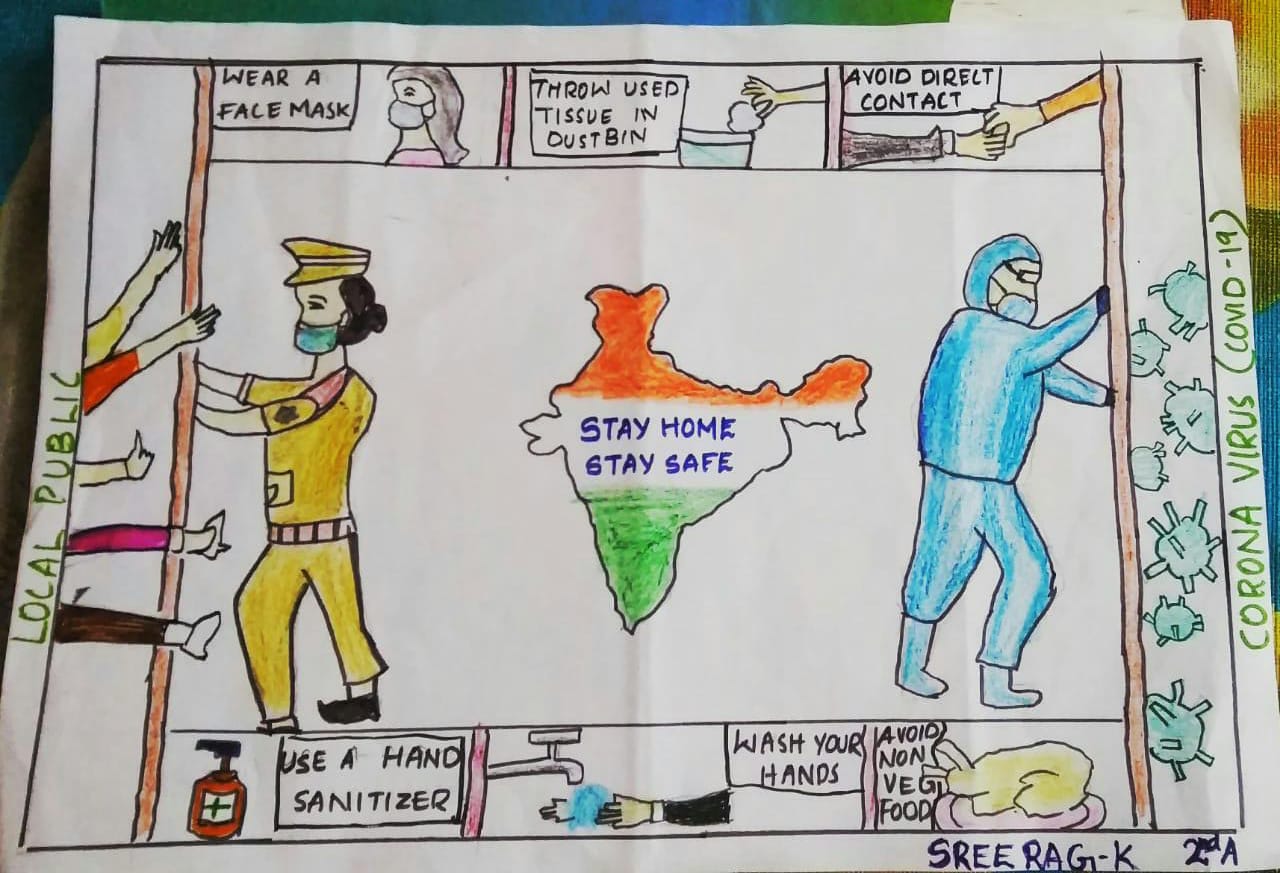 WEAR A
FACE MASK
THROW USED
TISSUE IN
DUSTBIN
AVOID DIRECT
CONTACT
LOCAL PUBLIC
STAY HOME
STAY SAFE
CORONA VIRUS (COVID-19)
USE A HAND
SANITIZER
WASH YOUR
HANDS
AVOID
NON
VEG
FOOD
SREERAG-K 2nd A